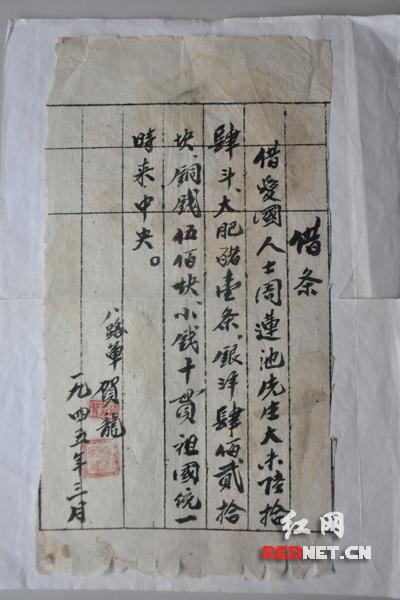 借条
借愛國人士周蓮池先生大米陆拾
肆斗、大肥豬壹条、銀洋肆佰貳拾
块、銅钱伍佰块、小钱十贯、祖國统一
時来中央。
八路軍 贺龍
一九四五年三月
红网
REDNET.CN